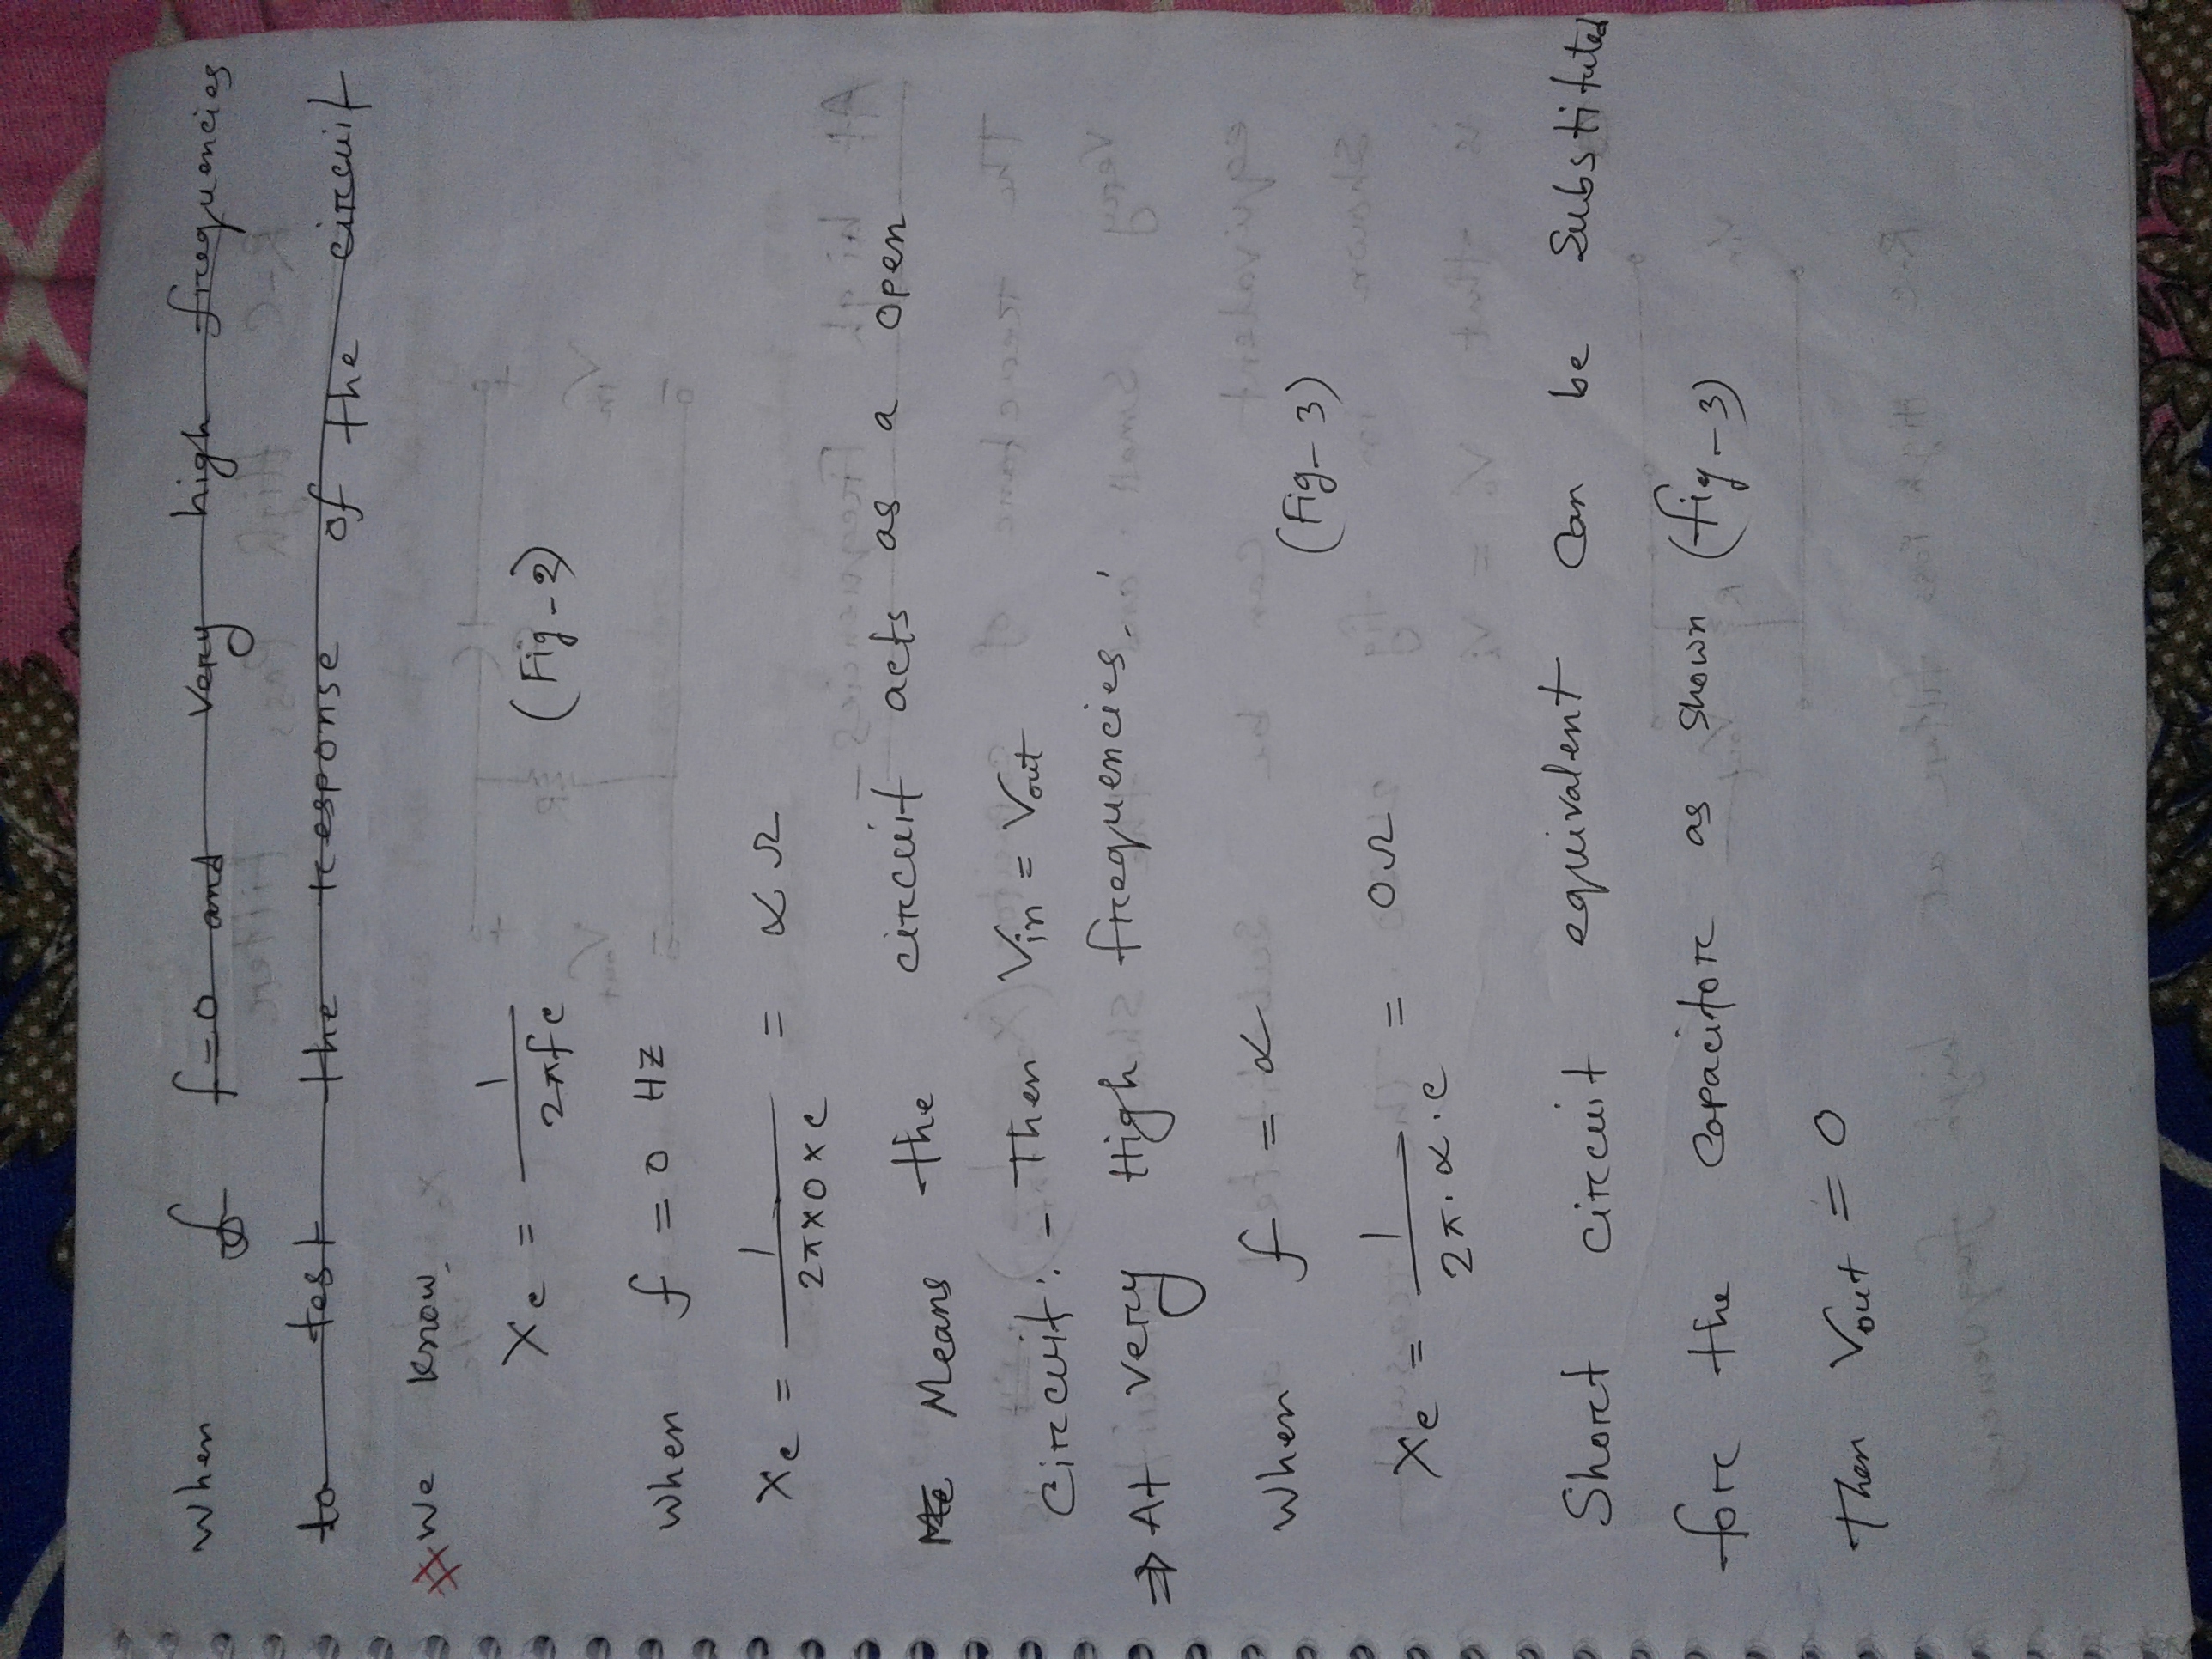 When f f=0 and very high frequencies
to test the response of the circuit
# We know.
Xc = 1/2πfc (Fig-2)
When f = 0 HZ
Xc = 1/2π×0×c = α Ω
Me Means the circuit acts as a open
circuit:- Then Vin = Vout
⇒ At very High frequencies.
When f = α
(Fig-3)
Xc = 1/2π.α.c = 0Ω
Short circuit equivalent can be Substituted
for the capacitor as shown (fig-3)
Then Vout = 0